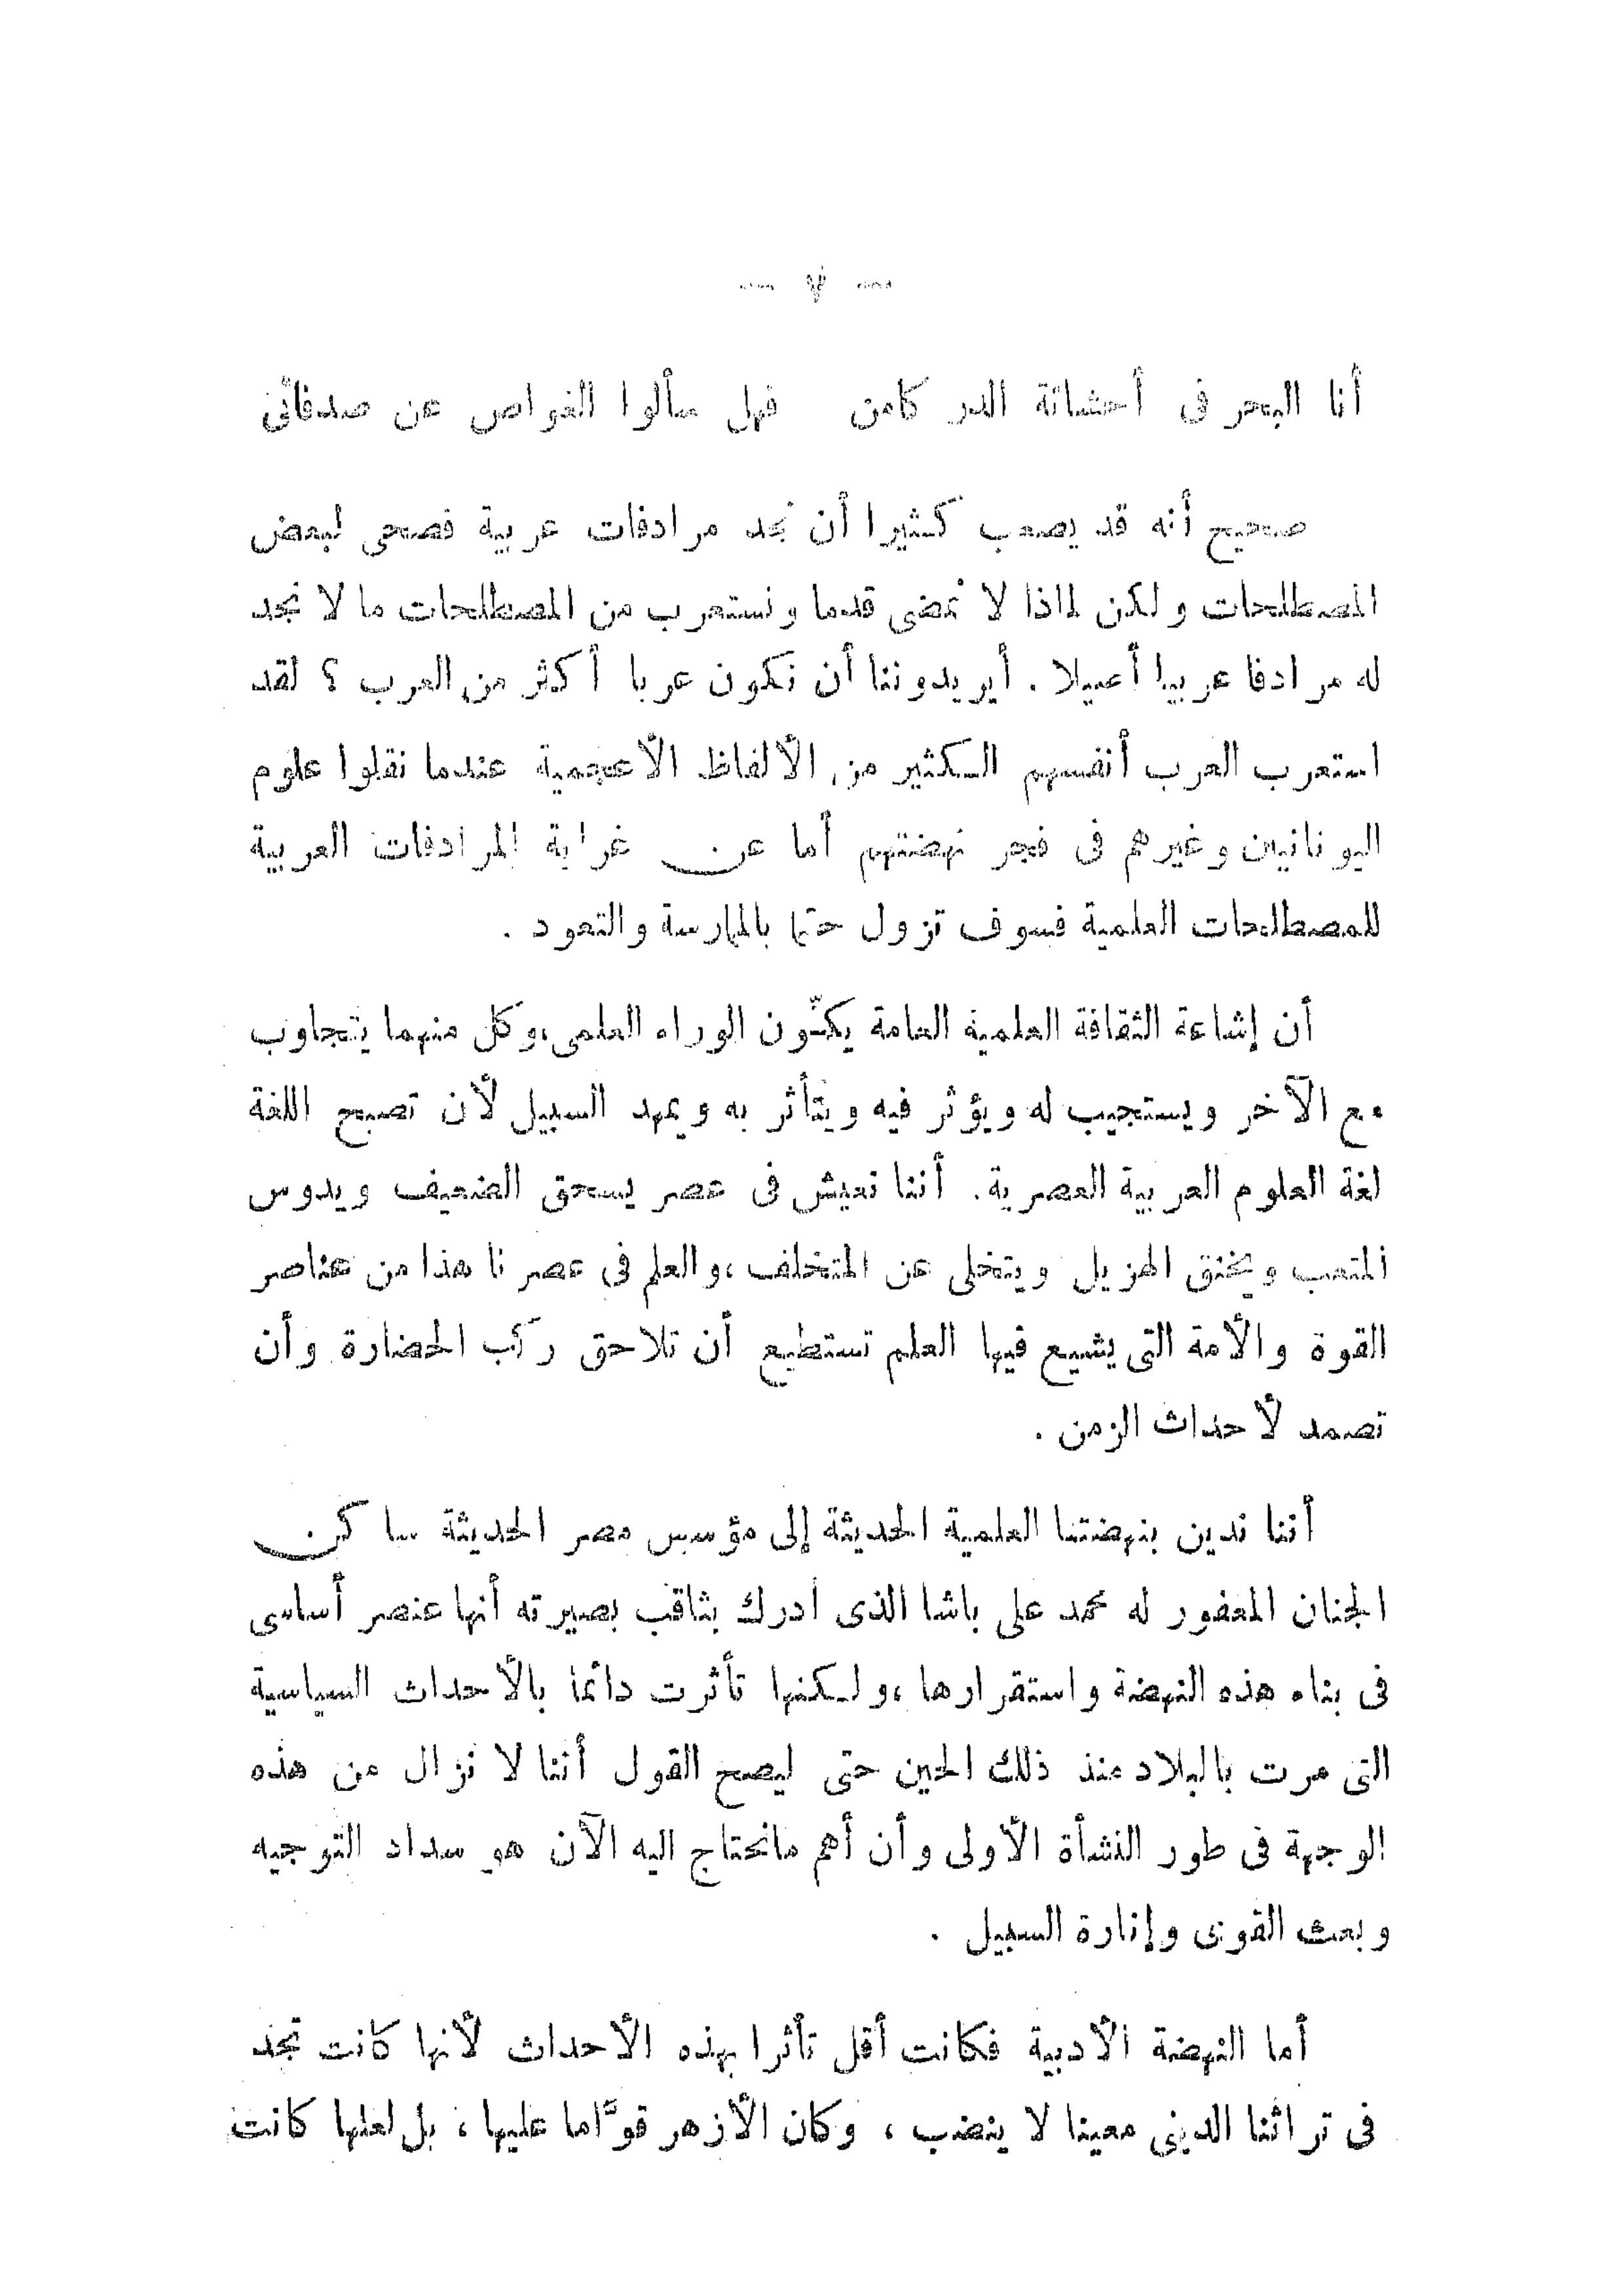 أنا البحر فى أحشائة الدر كامن فهل سألوا الغواص عن صدفاتى
صحيح أنه قد يصعب كثيرا أن نجد مرادفات عربية فصحى لبعض
المصطلحات ولكن لماذا لا نمضى قدما ونستعرب من المصطلحات ما لا نجد
له مرادفا عربيا أصيلا . أيريدوننا أن نكون عربا أكثر من العرب ؟ لقد
استعرب العرب أنفسهم الكثير من الألفاظ الأعجمية عندما نقلوا علوم
اليونانيين وغيرهم فى فجر نهضتهم أما عن غرابة المرادفات العربية
للمصطلحات العلمية فسوف تزول حتما بالممارسة والتعود .
أن إشاعة الثقافة العلمية العامة يكوّن الوراء العلمى ، وكل منهما يتجاوب
مع الآخر ويستجيب له ويؤثر فيه ويتأثر به ويمهد السبيل لأن تصبح اللغة
لغة العلوم العربية العصرية . أننا نعيش فى عصر يسحق الضعيف ويدوس
المتعب ويخنق الهزيل ويتخلى عن المتخلف ، والعلم فى عصرنا هذا من عناصر
القوة والأمة التى يشيع فيها العلم تستطيع أن تلاحق ركب الحضارة وأن
تصمد لأحداث الزمن .
أننا ندين بنهضتنا العلمية الحديثة إلى مؤسس مصر الحديثة ساكن
الجنان المغفور له محمد على باشا الذى أدرك بثاقب بصيرته أنها عنصر أساسى
فى بناء هذه النهضة واستقرارها ، ولكنها تأثرت دائما بالأحداث السياسية
التى مرت بالبلاد منذ ذلك الحين حتى ليصح القول أننا لا نزال من هذه
الوجهة فى طور النشأة الأولى وأن أهم مانحتاج اليه الآن هو سداد التوجيه
وبعث القوى وإنارة السبيل .
أما النهضة الأدبية فكانت أقل تأثرا بهذه الأحداث لأنها كانت تجد
فى تراثنا الدينى معينا لا ينضب ، وكان الأزهر قوّاما عليها ، بل لعلها كانت